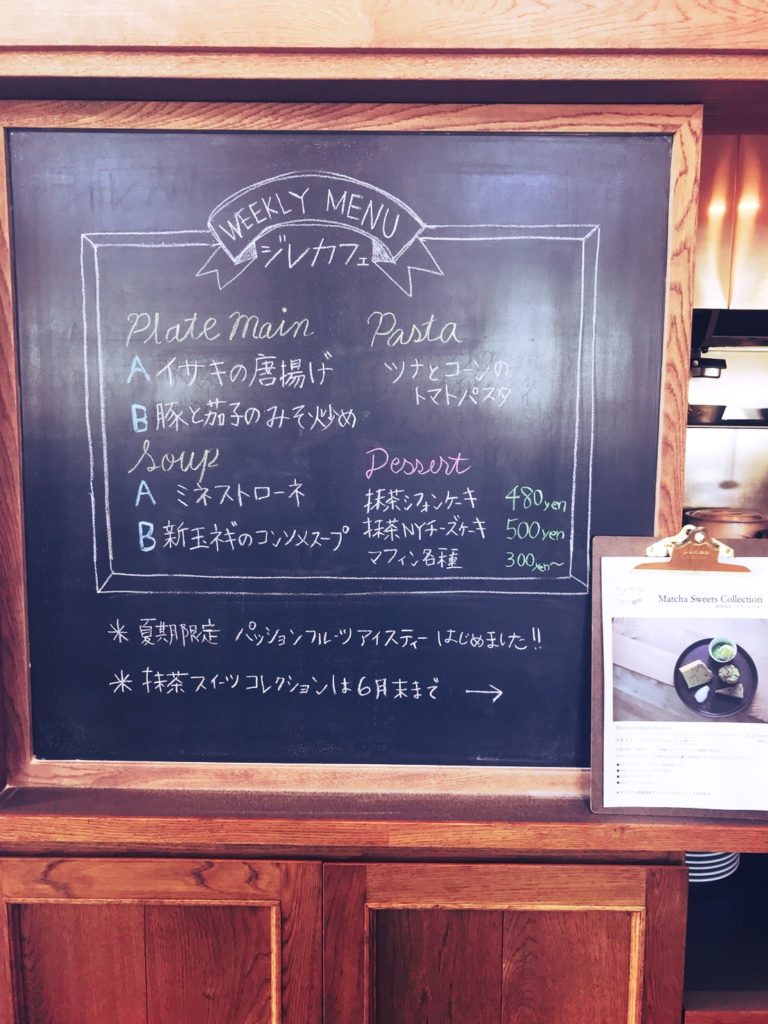 WEEKLY MENU
ジレカフェ
Plate Main
A イサキの唐揚げ
B 豚と茄子のみそ炒め
Soup
A ミネストローネ
B 新玉ネギのコンソメスープ
Pasta
ツナとコーンの
トマトパスタ
Dessert
抹茶シフォンケーキ 480yen
抹茶NYチーズケーキ 500yen
マフィン各種 300yen~
＊夏期限定 パッションフルーツアイスティー はじめました!!
＊抹茶スイーツコレクションは6月末まで →
Matcha Sweets Collection
Matcha Sweets Collection